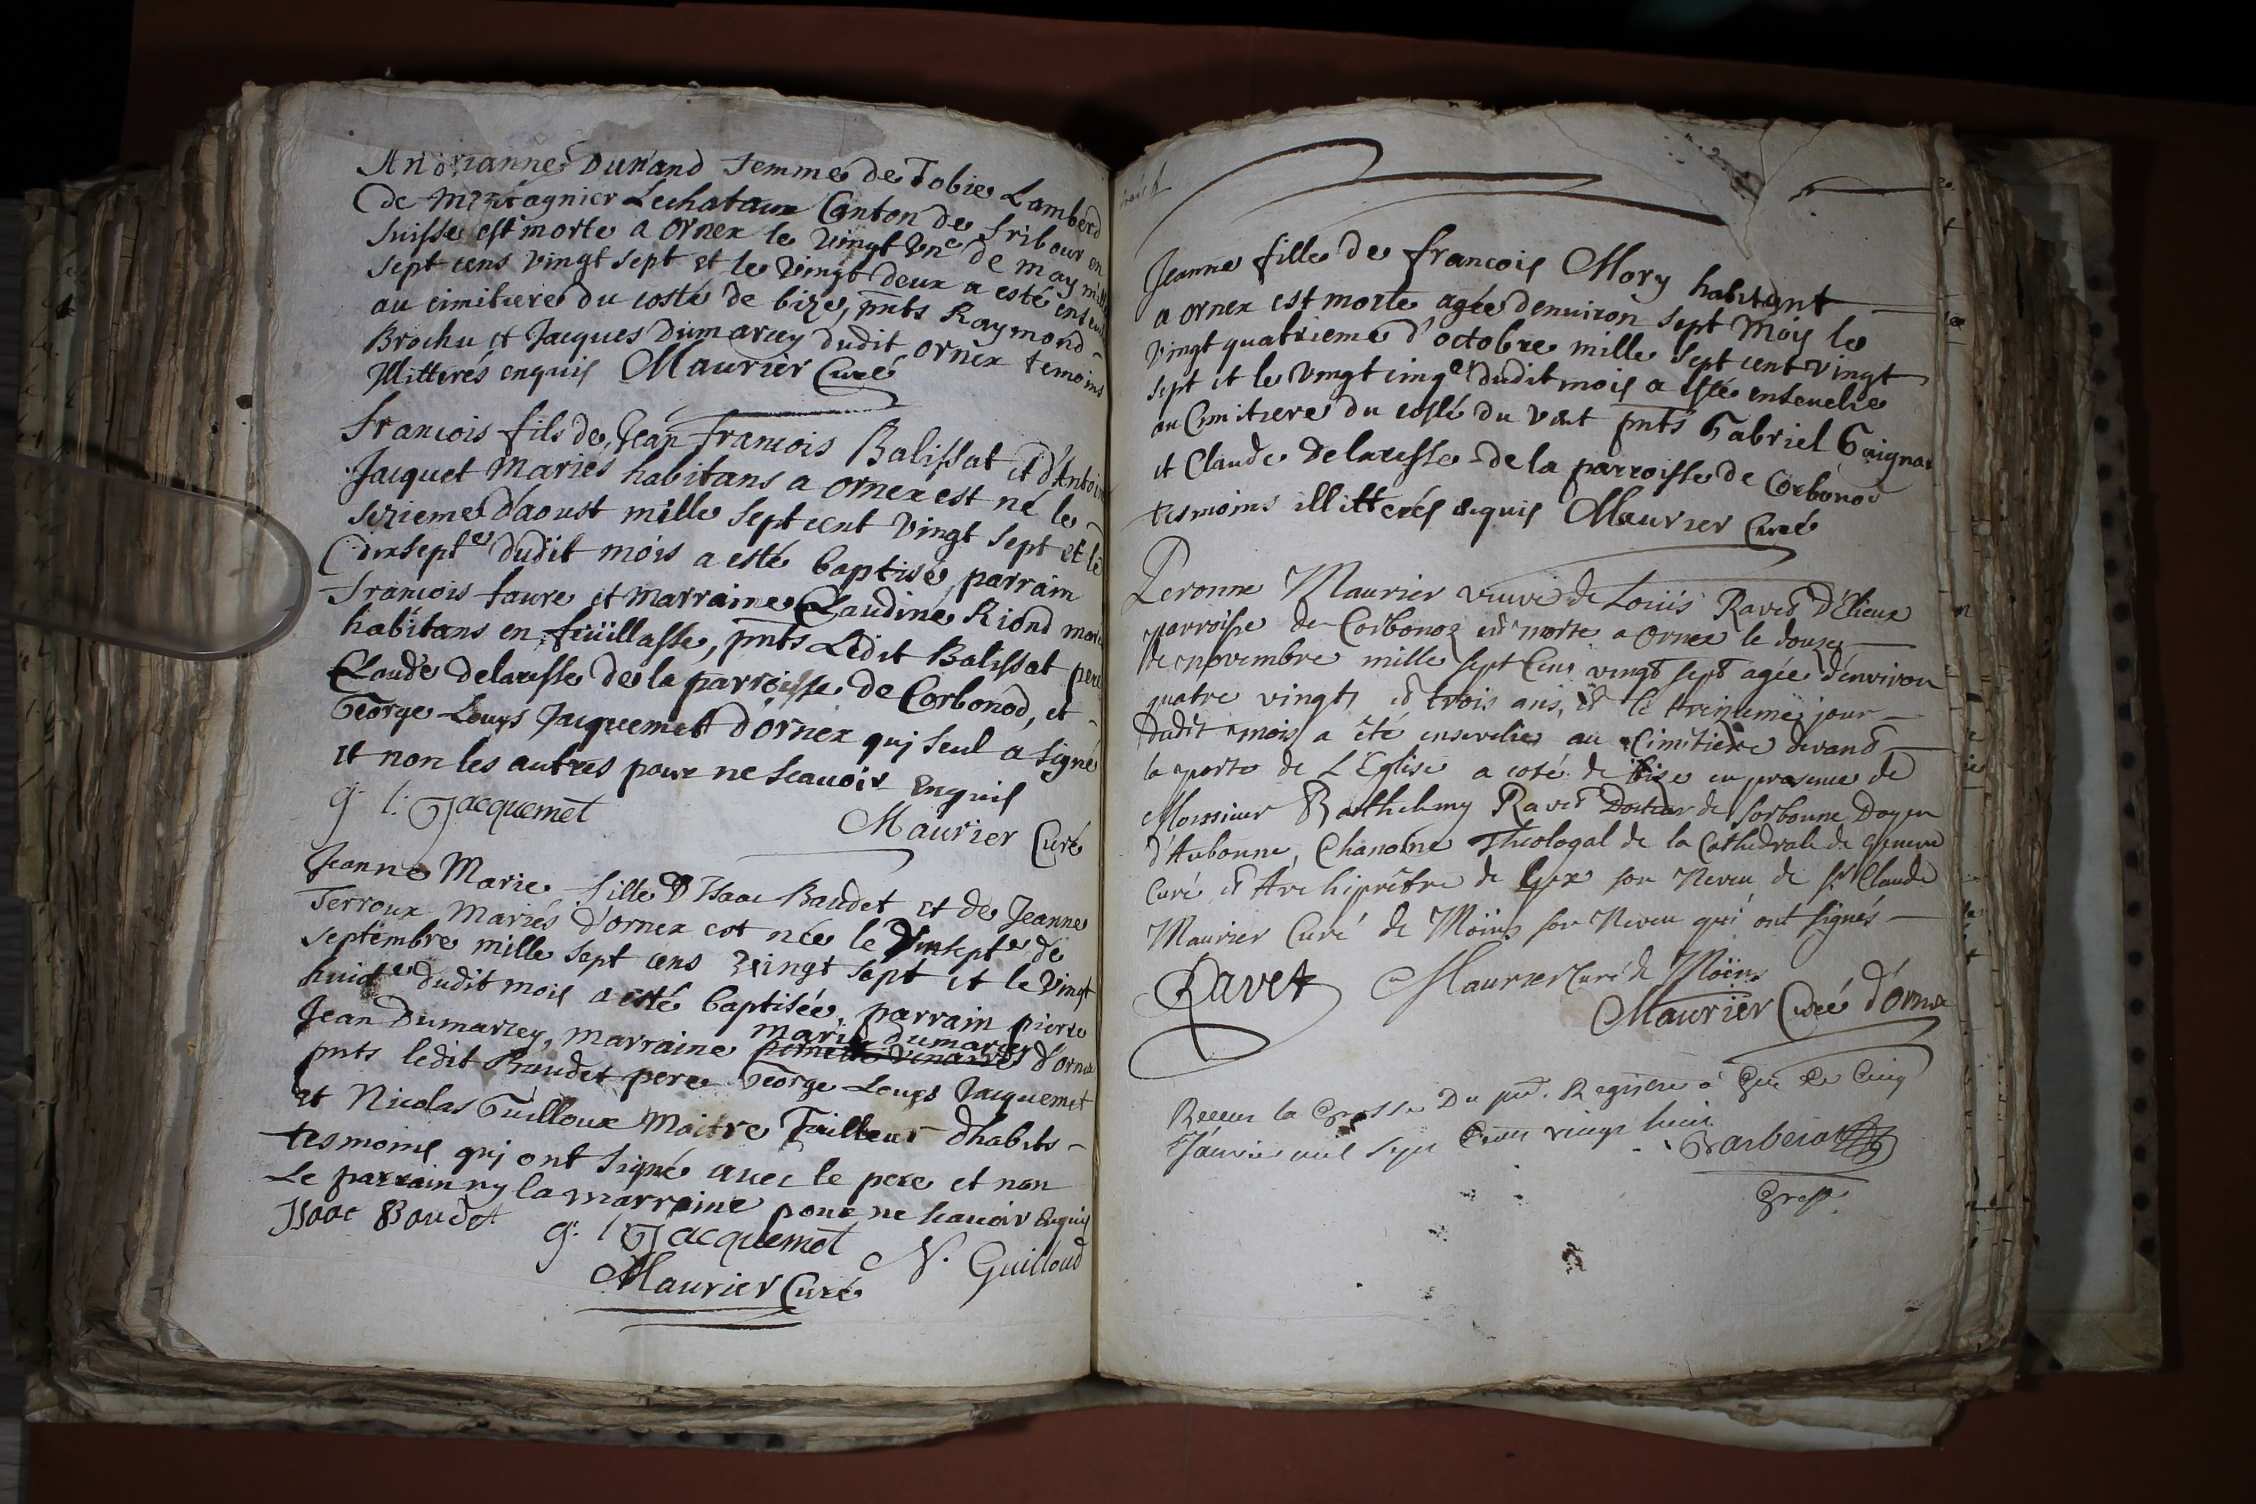 Andrianne Durand femme de Tobie Lamberd
de Montagnier Lechataux Canton de fribour en
Suisse est morte a ornex le vingt vne de may mille
sept cens vingt sept et le vingt deux a esté enseuelie
au cimitiere du costé de bize, pnts Raymond
Brochu et Jacques Dumarcey dudit ornex temoins
Illitterés enquis Maurier Curé
francois fils de Jean francois Balissat et d'Antoine
Jacquet Mariés habitans a ornex est né le
sezieme d'aoust mille sept cent vingt sept et le
dixsept e dudit mois a esté baptisé, parrain
francois faure et marraine Claudine Riond mariés
habitans en feüillasse, pnts Ledit Balissat pere
Claude delaresse de la parroisse de Corbonod, et
George Louys Jacquemet d'ornex qui seul a signé
et non les autres pour ne scauoir Enquis
g: l: Jacquemet
Maurier Curé
Jeanne Marie fille d'Isaac Baudet et de Jeanne
Terroux Mariés d'ornex est née le vintsept e de
septembre mille sept cens vingt sept et le vingt
huict e dudit mois a esté baptisée, parrain pierre
Jean Dumarcey, marraine marie dumarcey d'ornex
pnts ledit Baudet pere George Louys Jacquemet
et Nicolas Guilloux Maitre Tailleur d'habits
tesmoins qui ont signé auec le pere et non
Le parrain ny la marraine pour ne scauoir Enquis
Isaac Baudet g: l: Jacquemet N. Guilloud
Maurier Curé
Jeanne fille de francois Mory habitant
a ornex est morte agée denuiron sept mois le
vingt quatrieme d'octobre mille sept cent vingt
sept et le vingt cinq e dudit mois a esté enseuelie
au Cimitiere du costé du vent pnts Gabriel Gaignar
et Claude delaresse de la parroisse de Corbonod
tesmoins illitterés Enquis Maurier Curé
Peronne Maurier veuve de Loüis Ravet d'Elieux
parroisse de Corbonoz est morte a Ornex le douze
de novembre mille sept Cens vingt sept agée d'environ
quatre vingts et trois ans, et le treizieme jour
dudit mois a été ensevelie au Cimitiere devant
la porte de L'Eglise a coté de bise en presence de
Monsieur Barthelemy Ravet Docteur de Sorbonne Doyen
d'Aubonne, Chanoine Theologal de la Cathedrale de Geneve
Curé et Archiprêtre de Gex son Neveu de Sr Claude
Maurier Curé de Möins son Neveu qui ont signés
Ravet Maurier Curé de Möins
Maurier Curé d'ornex
Receu la Grosse Du pnt. Registre a Gex Le Cinq
Janvier mil sept Cent vingt huit
Barberat
Greff.